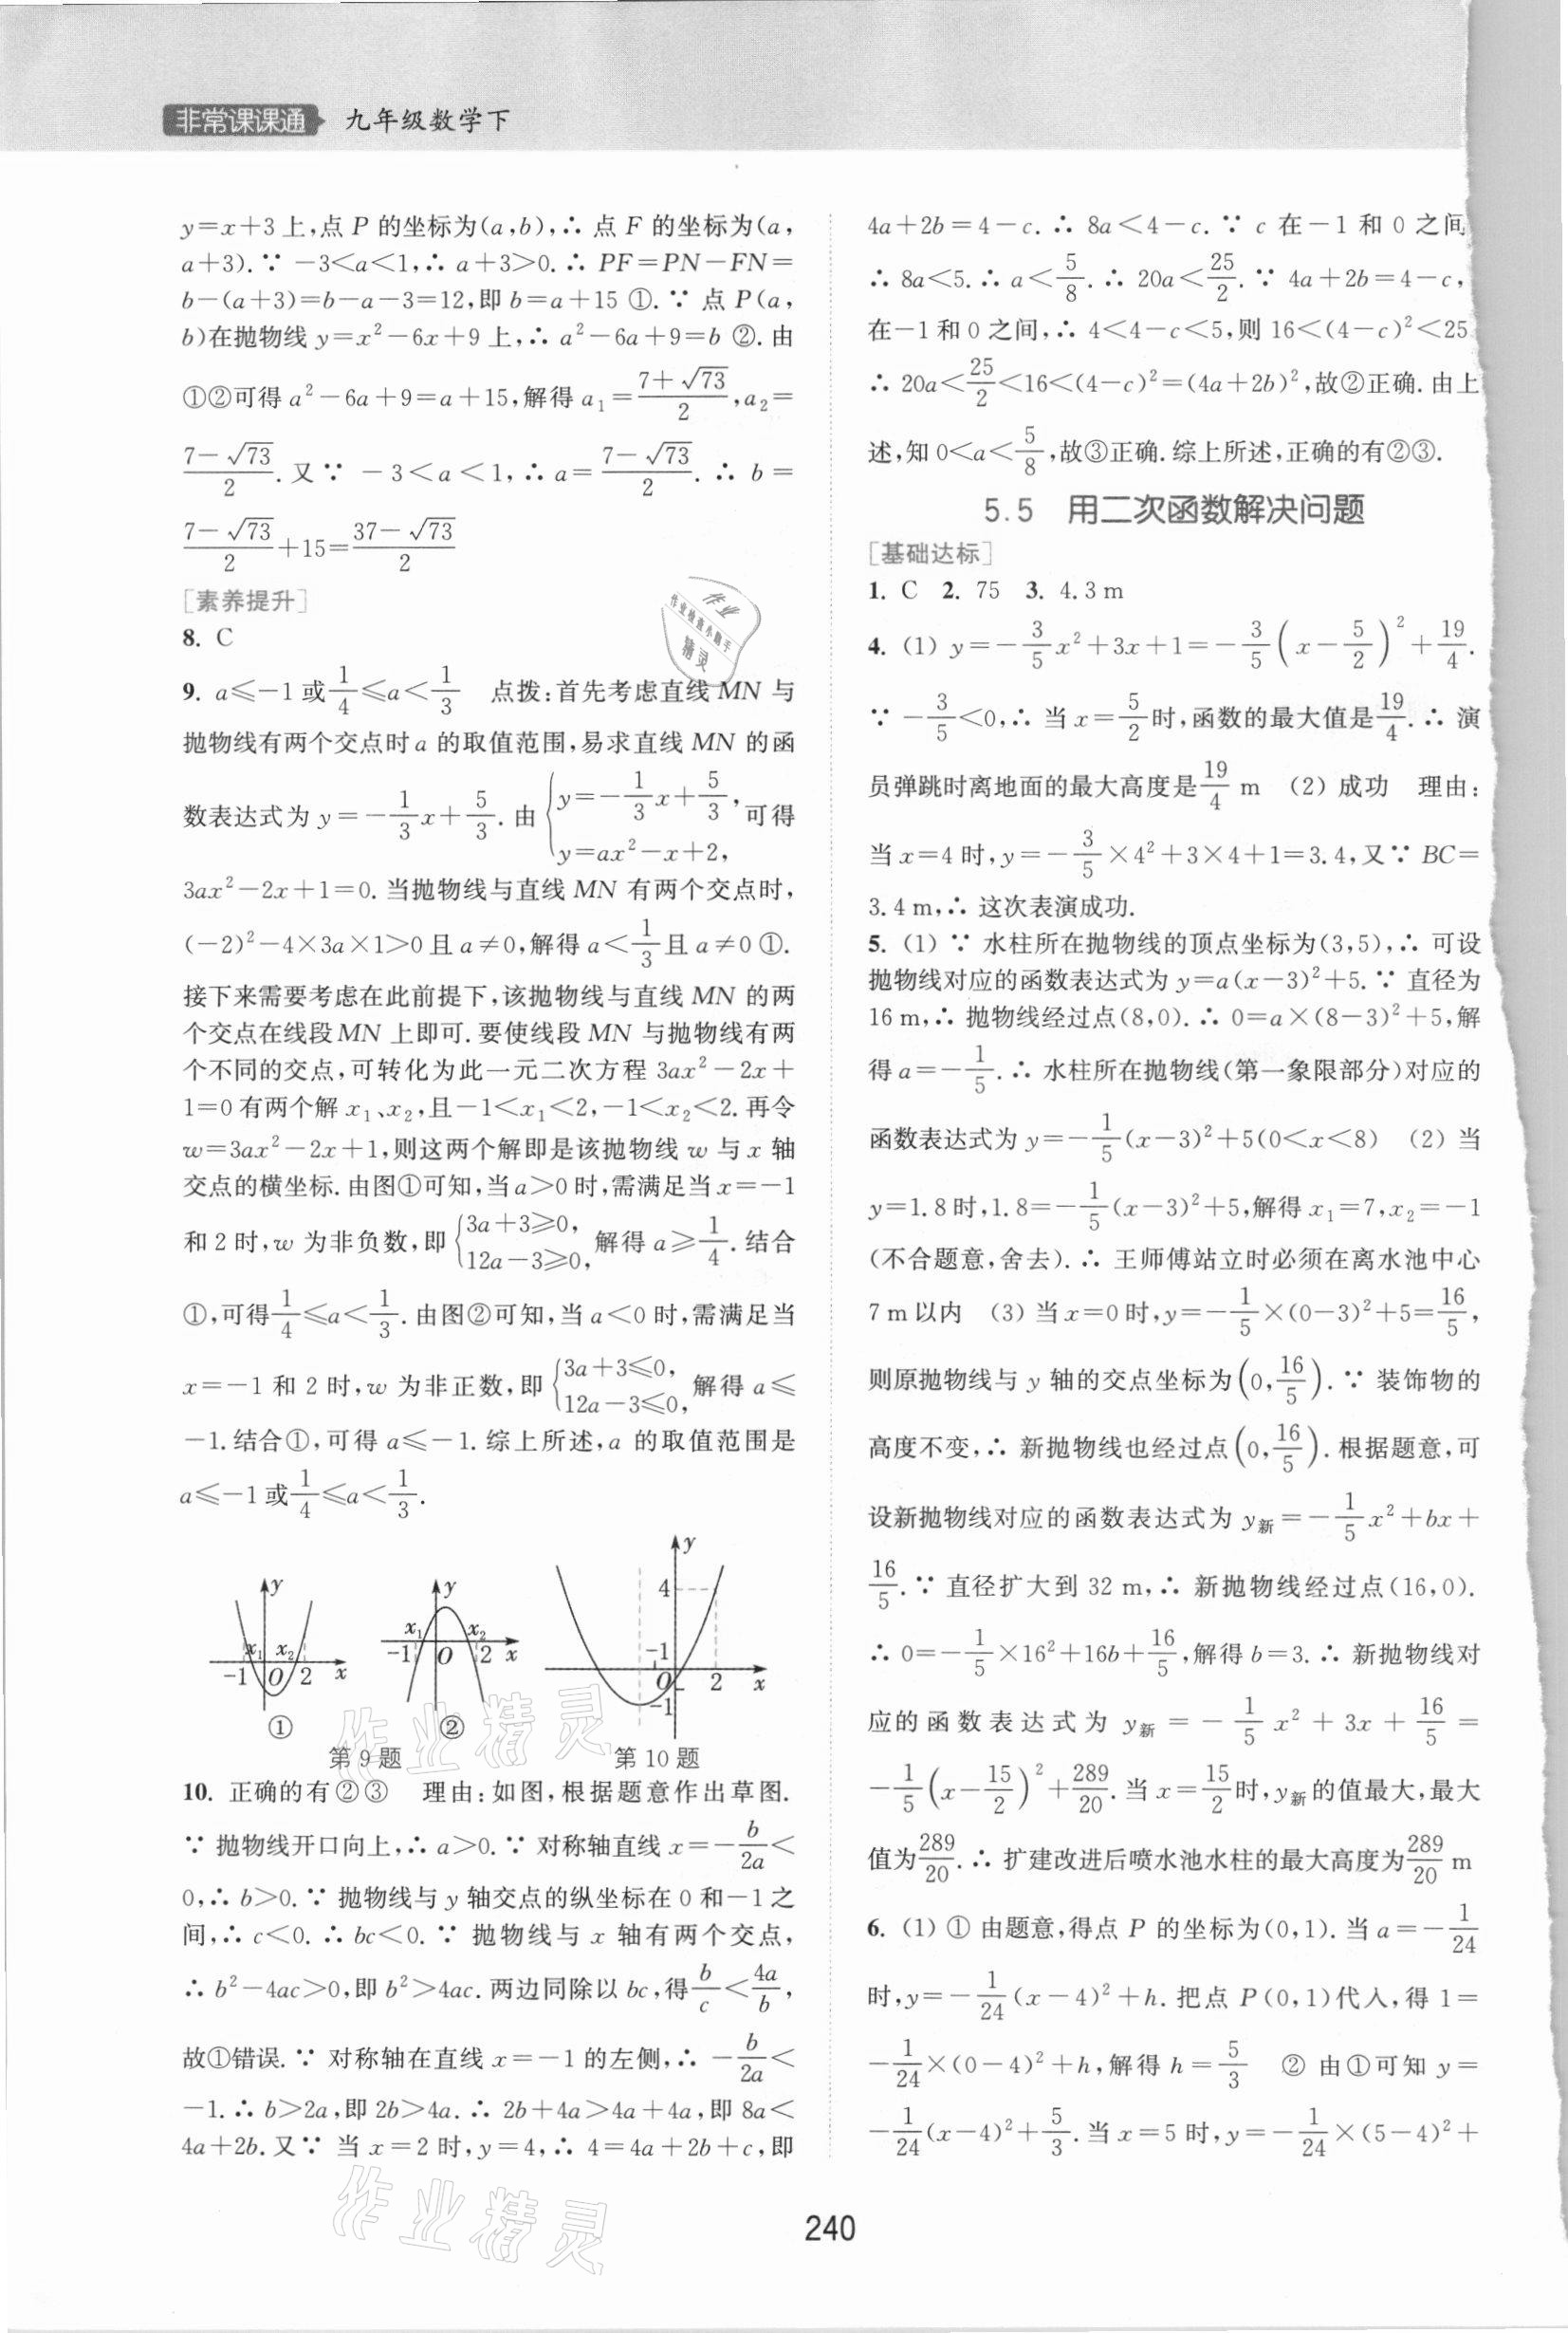 非常课课通 九年级数学下
y=x+3上,点 P 的坐标为(a,b),∴ 点 F 的坐标为(a,
a+3).∵ -3<a<1,∴ a+3>0.∴ PF=PN-FN=
b-(a+3)=b-a-3=12,即 b=a+15 ①.∵ 点 P(a,
b)在抛物线 y=x²-6x+9 上,∴ a²-6a+9=b ②.由
①②可得 a²-6a+9=a+15,解得 a₁=(7+√73)/2,a₂=
(7-√73)/2.又∵ -3<a<1,∴ a=(7-√73)/2.∴ b=
(7-√73)/2+15=(37-√73)/2
[素养提升]
8. C
9. a≤-1或1/4≤a<1/3 点拨:首先考虑直线 MN 与
抛物线有两个交点时a 的取值范围,易求直线 MN 的函
数表达式为 y=-1/3x+5/3.由{y=-1/3x+5/3, y=ax²-x+2,可得
3ax²-2x+1=0.当抛物线与直线 MN 有两个交点时,
(-2)²-4×3a×1>0且 a≠0,解得 a<1/3且 a≠0 ①.
接下来需要考虑在此前提下,该抛物线与直线 MN 的两
个交点在线段MN 上即可.要使线段 MN 与抛物线有两
个不同的交点,可转化为此一元二次方程 3ax²-2x+
1=0有两个解 x₁、x₂,且-1<x₁<2,-1<x₂<2.再令
w=3ax²-2x+1,则这两个解即是该抛物线 w 与 x 轴
交点的横坐标.由图①可知,当a>0时,需满足当x=-1
和2时,w 为非负数,即{3a+3≥0, 12a-3≥0,解得 a≥1/4.结合
①,可得1/4≤a<1/3.由图②可知,当 a<0 时,需满足当
x=-1和2时,w 为非正数,即{3a+3≤0, 12a-3≤0,解得 a≤
-1.结合①,可得 a≤-1.综上所述,a 的取值范围是
a≤-1或1/4≤a<1/3.
y x₁ x₂ -1 O 2 x
①
y x₁ x₂ -1 O 2 x
②
第9题
y 4 -1 O 2 x -1
第10题
10. 正确的有②③ 理由:如图,根据题意作出草图.
∵ 抛物线开口向上,∴ a>0.∵ 对称轴直线 x=-b/2a<
0,∴ b>0.∵ 抛物线与 y 轴交点的纵坐标在 0 和-1 之
间,∴ c<0.∴ bc<0.∵ 抛物线与 x 轴有两个交点,
∴ b²-4ac>0,即 b²>4ac.两边同除以 bc,得b/c<4a/b,
故①错误.∵ 对称轴在直线 x=-1 的左侧,∴ -b/2a<
-1.∴ b>2a,即 2b>4a.∴ 2b+4a>4a+4a,即 8a<
4a+2b.又∵ 当 x=2 时,y=4,∴ 4=4a+2b+c,即
4a+2b=4-c.∴ 8a<4-c.∵ c 在-1 和 0 之间,
∴ 8a<5.∴ a<5/8.∴ 20a<25/2.∵ 4a+2b=4-c,
在-1和0之间,∴ 4<4-c<5,则 16<(4-c)²<25
∴ 20a<25/2<16<(4-c)²=(4a+2b)²,故②正确.由上
述,知 0<a<5/8,故③正确.综上所述,正确的有②③.
5.5 用二次函数解决问题
[基础达标]
1. C 2. 75 3. 4.3 m
4. (1) y=-3/5x²+3x+1=-3/5(x-5/2)²+19/4.
∵ -3/5<0,∴ 当 x=5/2时,函数的最大值是19/4.∴ 演
员弹跳时离地面的最大高度是19/4 m (2) 成功 理由:
当 x=4 时,y=-3/5×4²+3×4+1=3.4,又∵ BC=
3.4 m,∴ 这次表演成功.
5. (1) ∵ 水柱所在抛物线的顶点坐标为(3,5),∴ 可设
抛物线对应的函数表达式为 y=a(x-3)²+5.∵ 直径为
16 m,∴ 抛物线经过点(8,0).∴ 0=a×(8-3)²+5,解
得 a=-1/5.∴ 水柱所在抛物线(第一象限部分)对应的
函数表达式为 y=-1/5(x-3)²+5(0<x<8) (2) 当
y=1.8时,1.8=-1/5(x-3)²+5,解得 x₁=7,x₂=-1
(不合题意,舍去).∴ 王师傅站立时必须在离水池中心
7 m以内 (3) 当 x=0 时,y=-1/5×(0-3)²+5=16/5,
则原抛物线与 y 轴的交点坐标为(0,16/5).∵ 装饰物的
高度不变,∴ 新抛物线也经过点(0,16/5).根据题意,可
设新抛物线对应的函数表达式为 y新=-1/5x²+bx+
16/5.∵ 直径扩大到 32 m,∴ 新抛物线经过点(16,0).
∴ 0=-1/5×16²+16b+16/5,解得 b=3.∴ 新抛物线对
应的函数表达式为 y新=-1/5x²+3x+16/5=
-1/5(x-15/2)²+289/20.当 x=15/2时,y新的值最大,最大
值为289/20.∴ 扩建改进后喷水池水柱的最大高度为289/20 m
6. (1) ① 由题意,得点 P 的坐标为(0,1).当 a=-1/24
时,y=-1/24(x-4)²+h.把点 P(0,1)代入,得 1=
-1/24×(0-4)²+h,解得 h=5/3 ② 由①可知 y=
-1/24(x-4)²+5/3.当 x=5 时,y=-1/24×(5-4)²+
240
作业
作业检查小助手
精灵
作业精灵
作业精灵